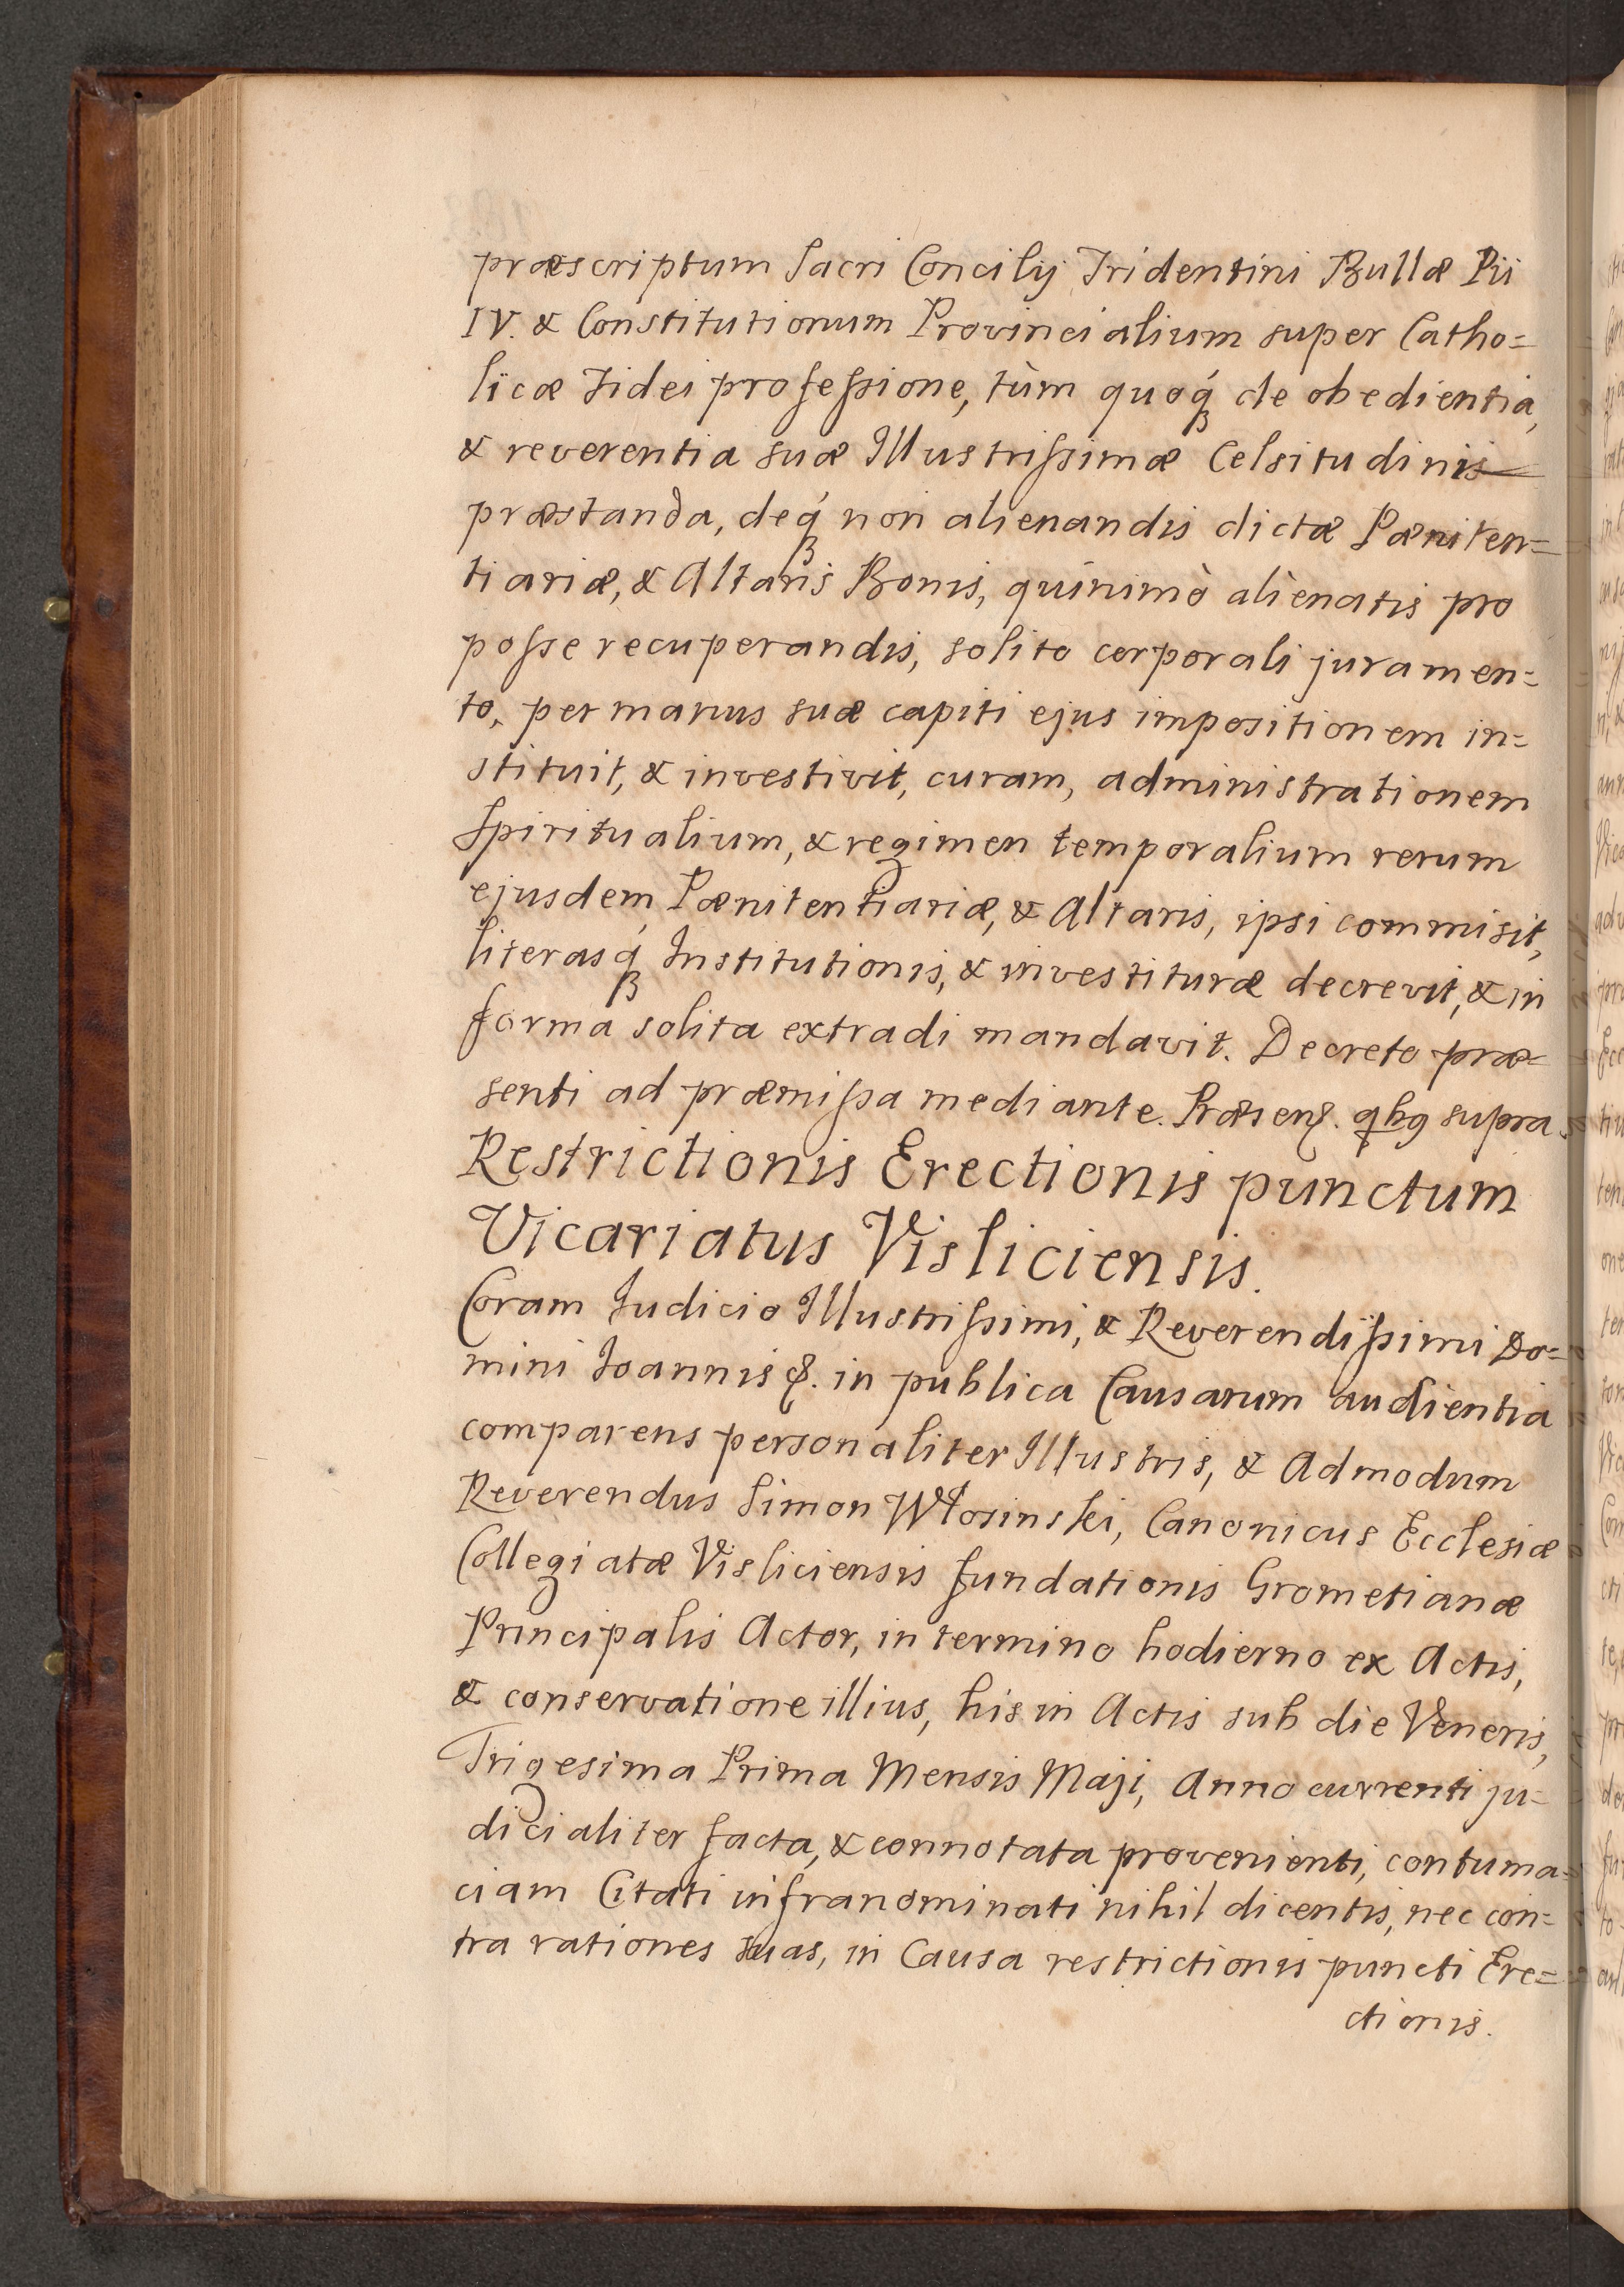 præscriptum Sacri Concilij Tridentini Bullæ Pii
IV. & Constitutionum Provincialium super Catho=
licæ Fidei professione, tùm quoq́ꝫ de obedientia,
& reverentia suæ Illustrissimæ Celsitudinis
præstanda, deq́ꝫ non alienandis dictæ Pæniten=
tiariæ, & Altaris Bonis, quinimò alienatis pro
posse recuperandis, solito corporali juramen=
to, per manus suæ capiti ejus impositionem in=
stituit, & investivit, curam, administrationem
Spiritualium, & regimen temporalium rerum
ejusdem Pænitentiariæ, & Altaris, ipsi commisit,
literasq́ꝫ Institutionis, & investituræ decrevit, & in
forma solita extradi mandavit. Decreto præ=
senti ad præmissa mediante. Præsen. qbꝯ supra
Restrictionis Erectionis punctum
Vicariatus Visliciensis.
Coram Judicio Illustrissimi, & Reverendissimi Do=
mini Joannis &. in publica Causarum audientia
comparens personaliter Illustris, & Admodum
Reverendus Simon Włosinski, Canonicus Ecclesiæ
Collegiatæ Visliciensis fundationis Grometianæ
Principalis Actor, in termino hodierno ex Actis,
& conservatione illius, his in Actis sub die Veneris,
Trigesima Prima Mensis Maji, Anno currenti ju=
dicialiter facta, & connotata provenienti, contuma=
ciam Citati infranominati nihil dicentis, nec con=
tra rationes suas, in Causa restrictionis puncti Ere=
ctionis.